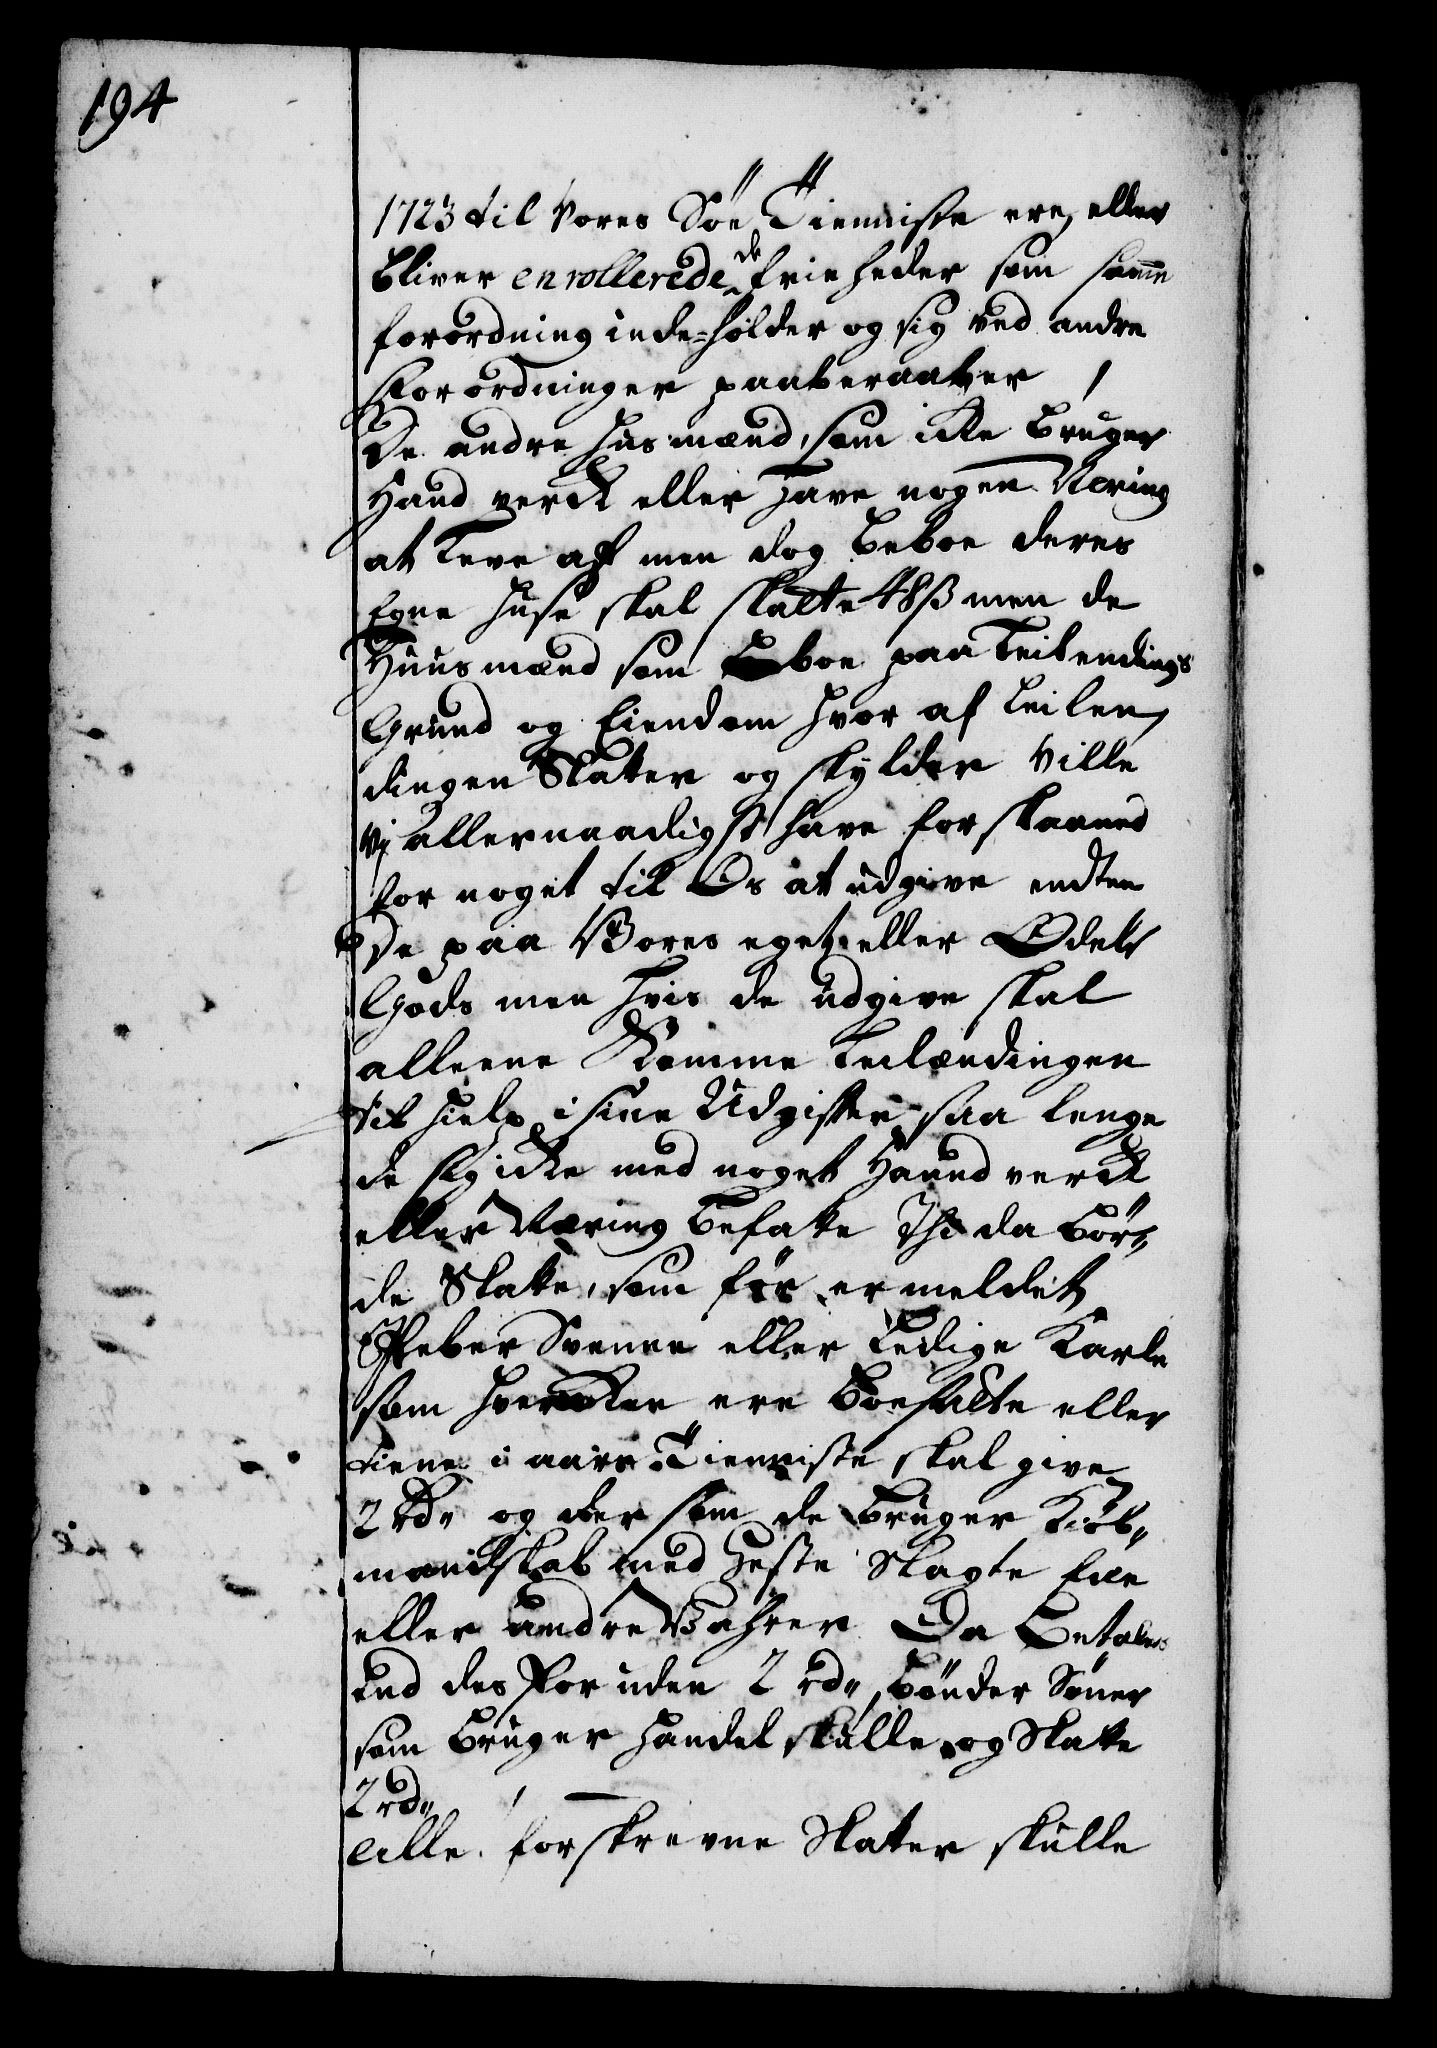 194
1723 til Vores Söe Tienniste ere, eller
bliver enrollerede de friheder som samme
forordning inde-holder og sig ved andre
forordninger paaberaaber
De andre Husmænd, som icke bruger
Haand verck eller have nogen Næring
at leve aff men dog beboe deres
Egne Huse skal skatte 48 ß men de
Huusmænd som boe paa Leilendings
Grund og Eiendom hvor af Leilen,
dingen Skatter og skylder Ville
Vj allernaadigst have forskaaned
for noget til Os at udgive endten
De paa Vores eget eller Odels
Gods men hvis de udgive skal
alleene komme Leilændingen
til hielp i sine Udgifter saa lenge
de sig icke med noget Haand verck
eller Næring befatte Thi da bör
de Skatte, som för er meldet
Peber Svenne eller Ledige Karle
som hvercken ere boesatte eller
tiene i aars Tienniste skal give
2 rd og der som de bruger Kiöb"
mandskab med Heste Slagte Fæe
eller andre Vahrer Da betales
end des foruden 2 rd" bönder Sönner
som bruger Handel skulle og Skatte
2 rd"
Alle forskrevne Skatter skulle